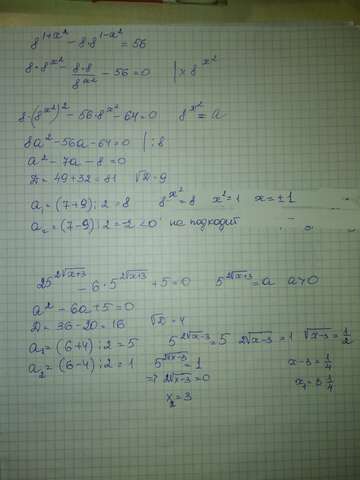 8^{1+x^2} - 8·8^{1-x^2} = 56
8·8^{x^2} - \frac{8·8}{8^{x^2}} - 56 = 0 |×8^{x^2}
8·(8^{x^2})^2 - 56·8^{x^2} - 64 = 0 8^{x^2} = a
8a^2 - 56a - 64 = 0 |:8
a^2 - 7a - 8 = 0
D = 49+32 = 81 √D = 9
a_1 = (7+9):2 = 8 8^{x^2} = 8 x^2 = 1 x = ±1
a_2 = (7-9):2 = -2 < 0 не подходит
25^{2\sqrt{x+3}} - 6·5^{2\sqrt{x+3}} + 5 = 0 5^{2\sqrt{x+3}} = a a>0
a^2 - 6a + 5 = 0
D = 36 - 20 = 16 √D = 4
a_1 = (6+4):2 = 5 5^{2\sqrt{x-3}} = 5 2\sqrt{x-3} = 1 \sqrt{x-3} = \frac{1}{2}
a_2 = (6-4):2 = 1 5^{2\sqrt{x-3}} = 1 x-3 = \frac{1}{4}
=> 2\sqrt{x-3} = 0 x_1 = 3\frac{1}{4}
x_2 = 3